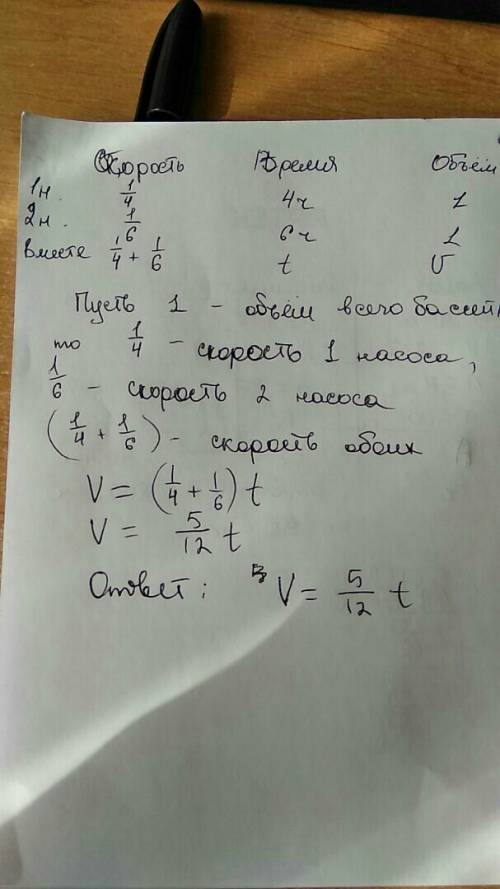 Скорость Время Объём
1н. 1/4 4ч 1
2н. 1/6 6ч 1
Вместе 1/4 + 1/6 t V
Пусть 1 - объём всего бассейн
то 1/4 - скорость 1 насоса,
1/6 - скорость 2 насоса
(1/4 + 1/6) - скорость обоих
V = (1/4 + 1/6) t
V = 5/12 t
Ответ: V = 5/12 t